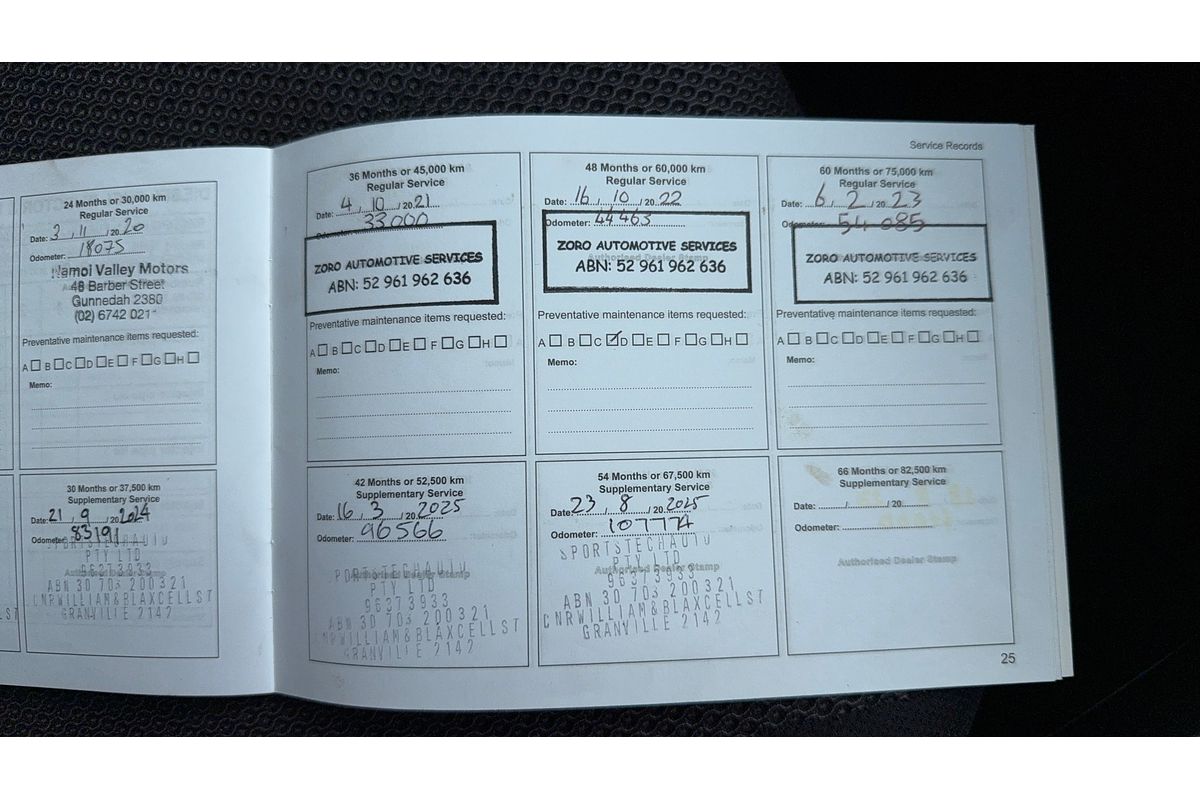 Service Records
24 Months or 30,000 km
Regular Service
Date: 3 / 11 / 20 20
Odometer: 18075
Namoi Valley Motors
48 Barber Street
Gunnedah 2380
(02) 6742 021
Preventative maintenance items requested:
A☐ B☐ C☐ D☐ E☐ F☐ G☐ H☐
Memo:
36 Months or 45,000 km
Regular Service
Date: 4 / 10 / 20 21
Odometer: 33000
ZORO AUTOMOTIVE SERVICES
ABN: 52 961 962 636
Preventative maintenance items requested:
A☐ B☐ C☐ D☐ E☐ F☐ G☐ H☐
Memo:
48 Months or 60,000 km
Regular Service
Date: 16 / 10 / 20 22
Odometer: 44463
ZORO AUTOMOTIVE SERVICES
Authorised Dealer Stamp
ABN: 52 961 962 636
Preventative maintenance items requested:
A☐ B☐ C☑ D☐ E☐ F☐ G☐ H☐
Memo:
60 Months or 75,000 km
Regular Service
Date: 6 / 2 / 20 23
Odometer: 54 085
ZORO AUTOMOTIVE SERVICES
ABN: 52 961 962 636
Preventative maintenance items requested:
A☐ B☐ C☐ D☐ E☐ F☐ G☐ H☐
Memo:
30 Months or 37,500 km
Supplementary Service
Date: 21 / 9 / 20 2024
Odometer: 83191
SPORTSTECHAUTO
PTY LTD
Authorised Dealer Stamp
96373933
ABN 30 703 200321
CNRWILLIAM&BLAXCELLST
GRANVILLE 2142
42 Months or 52,500 km
Supplementary Service
Date: 16 / 3 / 20 2025
Odometer: 96566
PORTSTECHAUTO
Authorised Dealer Stamp
PTY LTD
96373933
ABN 30 703 200321
NRWILLIAM&BLAXCELLST
GRANVILLE 2142
54 Months or 67,500 km
Supplementary Service
Date: 23 / 8 / 20 2025
Odometer: 107774
SPORTSTECHAUTO
PTY LTD
Authorised Dealer Stamp
96373933
ABN 30 703 200321
CNRWILLIAM&BLAXCELLST
GRANVILLE 2142
66 Months or 82,500 km
Supplementary Service
Date: / / 20
Odometer:
Authorised Dealer Stamp
25